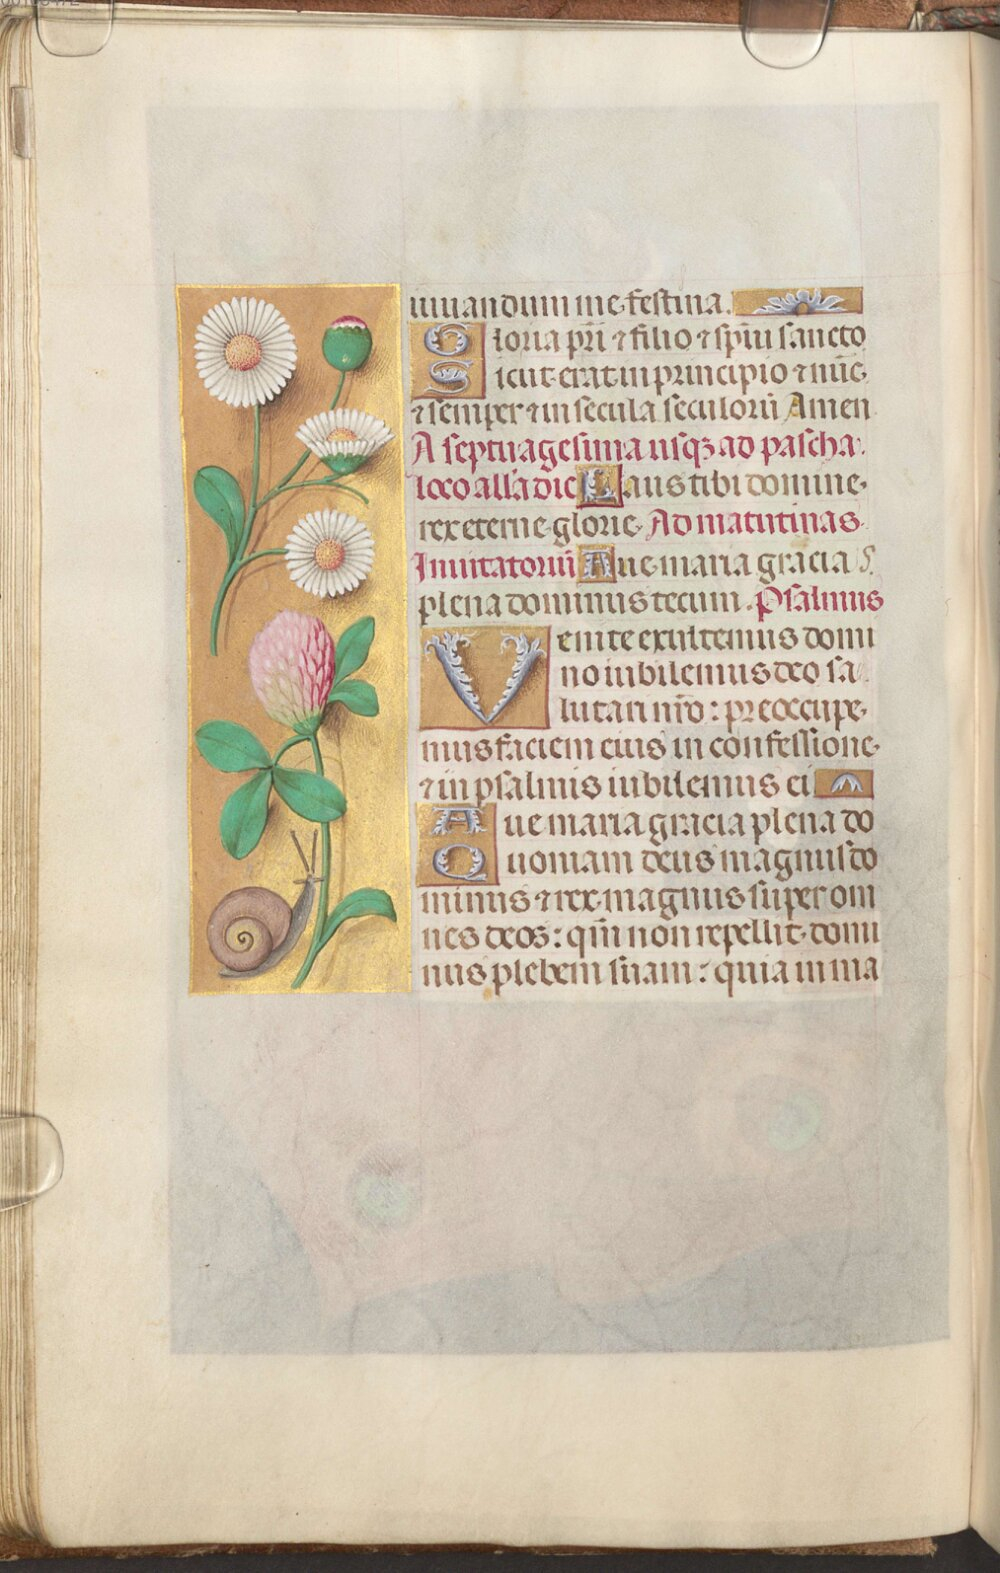 iuuandum me festina.
Gloria pri ⁊ filio ⁊ spiu sancto
Sicut erat in principio ⁊ nūc
⁊ semper ⁊ in secula seculorū Amen
A septuagesima usqꝫ ad pascha
loco alla dic Laus tibi domine
rex eterne glorie Ad matutinas
Inuitatoriū Aue maria gracia
plena dominus tecum. Psalmus
Venite exultemus domi
no iubilemus deo sa
lutari nr̄o : preoccupe
mus faciem eius in confessione
⁊ in psalmis iubilemus ei
Aue maria gracia plena do
Quoniam deus magnus do
minus ⁊ rex magnus super om
nes deos : qm̄ non repellit domi
nus plebem suam : quia in ma